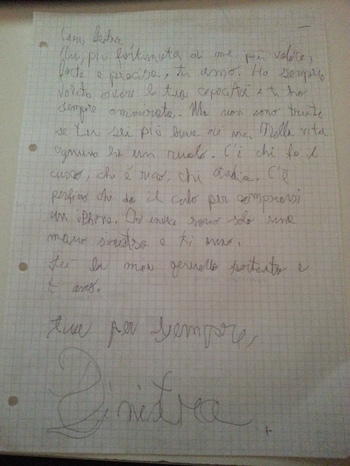 Cara destra
più fortunata di me, più veloce,
forte e precisa, ti amo. Ho sempre
voluto avere le tue capacità e ti ho
sempre ammirata. Ma non sono triste
se tu sei più brava di me. Nella vita
ognuno ha un ruolo. C'è chi fa il
cuoco, chi è ricco, chi studia. C'è
perfino chi da il culo per comprarsi
un iPhone. Io invece sono solo una
mano sinistra e ti amo.
Sei la mia gemella e
ti amo.
tua per sempre,
Sinistra